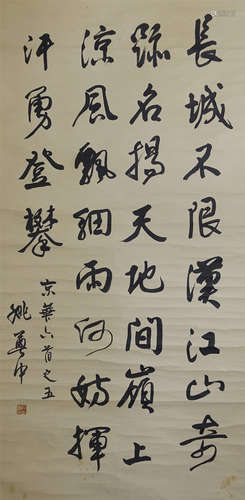 長城不限漢江山奇
跡名揚天地間嶺上
涼風飄細雨何妨揮
汗勇登攀
京華六首之五
姚奠中